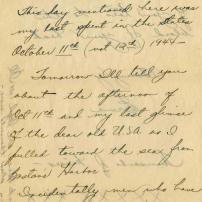 This day mentioned here was
my last spent in the States
October 11th (not 12th) 1944 -
Tomorrow I'll tell you
about the afternoon of
Oct 11th and my last glimpse
of the dear old U.S.A. as I
pulled toward the sea from
Boston's Harbor
Incidentally men who have